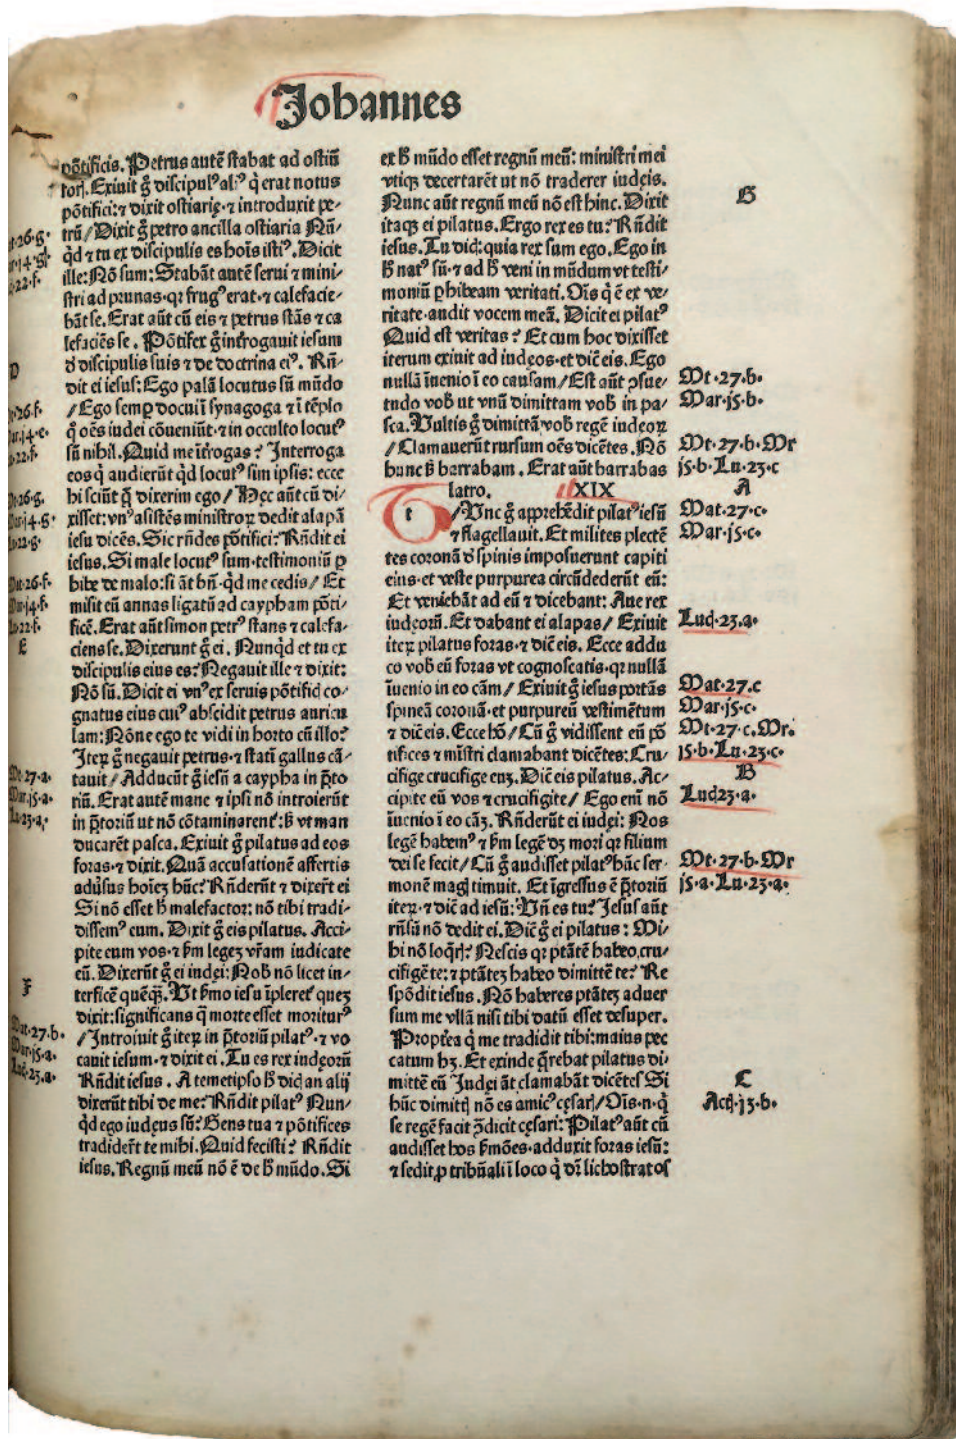 Johannes
põtificis. Petrus autẽ stabat ad ostiũ
forꝭ. Exiuit g̃ discipulꝰ aliꝰ q̃ erat notus
põtifici: ⁊ dixit ostiarię ⁊ introduxit pe-
trũ / Dixit g̃ petro ancilla ostiaria Nũ-
q̃d ⁊ tu ex discipulis es hoĩs istiꝰ. Dicit
ille: Nõ sum: Stabãt autẽ serui ⁊ mini-
stri ad prunas · qꝛ frugꝰ erat · ⁊ calefacie-
bãt se. Erat aũt cũ eis ⁊ petrus stãs ⁊ ca
lefaciẽs se. Põtifex g̃ ĩterrogauit iesum
ð discipulis suis ⁊ de doctrina eiꝰ. Rñ-
dit ei iesus: Ego palã locutus sũ mũdo
/ Ego semꝑ docui ĩ synagoga ⁊ ĩ tẽplo
q̃ oẽs iudei cõueniũt · ⁊ in occulto locutꝰ
sũ nihil. Quid me ĩterrogas? Interroga
eos q̃ audierũt q̃d locutꝰ sim ipsis: ecce
hi sciũt q̃ dixerim ego / Hęc aũt cũ di-
xisset: vnꝰ asistẽs ministroꝝ dedit alapã
iesu dicẽs. Sic rñdes põtifici? Rñdit ei
iesus. Si male locutꝰ sum · testimoniũ ꝑ
hibe de malo: si ãt bñ · q̃d me cedis / Et
misit eũ annas ligatũ ad caypham põti-
ficẽ. Erat aũt simon petrꝰ stans ⁊ calefa-
ciens se. Dixerunt g̃ ei. Nunq̃d et tu ex
discipulis eius es? Negauit ille ⁊ dixit:
Nõ sũ. Dicit ei vnꝰ ex seruis põtificꝭ co-
gnatus eius cuiꝰ abscidit petrus auricu
lam: Nõne ego te vidi in horto cũ illo?
Iteꝝ g̃ negauit petrus · ⁊ statĩ gallus cã-
tauit / Adducũt g̃ iesũ a caypha in p̃to
riũ. Erat autẽ mane ⁊ ipsi nõ introierũt
in p̃toriũ ut nõ cõtaminarent̃: ß vt man
ducarẽt pasca. Exiuit g̃ pilatus ad eos
foras · ⁊ dixit. Quã accusationẽ affertis
adṽsus hoĩeꝫ hũc? Rñderũt ⁊ dixert̃ ei
Si nõ esset hˀ malefactor: nõ tibi tradi-
dissemꝰ eum. Dixit g̃ eis pilatus. Acci-
pite eum vos · ⁊ ẞm legeꝫ vr̃am iudicate
eũ. Dixerũt g̃ ei iudęi: Nobˀ nõ licet in-
terficẽ quẽq̃. Ut ẞmo iesu ĩpleret̃ queꝫ
dixit: significans q̃ morte esset moriturꝰ
/ Introiuit g̃ iteꝝ in p̃toriũ pilatꝰ · ⁊ vo
cauit iesum · ⁊ dixit ei. Tu es rex iudęorũ
Rñdit iesus. A temetipso hˀ dicꝭ an alij
dixerũt tibi de me? Rñdit pilatꝰ Nun-
q̃d ego iudęus sũ? Gens tua ⁊ põtifices
tradidert̃ te mihi. Quid fecisti? Rñdit
iesus. Regnũ meũ nõ ẽ de hˀ mũdo. Si
ex hˀ mũdo esset regnũ meũ: ministri mei
vtiqꝫ decertarẽt ut nõ traderer iudęis.
Nunc aũt regnũ meũ nõ est hinc. Dixit
itaqꝫ ei pilatus. Ergo rex es tu? Rñdit
iesus. Tu dicꝭ: quia rex sum ego. Ego in
hˀ natꝰ sũ · ⁊ ad hˀ veni in mũdum vt testi-
moniũ ꝑhibeam veritati. Oĩs q̃ ẽ ex ve-
ritate · audit vocem meã. Dicit ei pilatꝰ
Quid est veritas? Et cum hoc dixisset
iterum exiuit ad iudęos · et dic̃ eis. Ego
nullã ĩuenio ĩ eo causam / Est aũt ꝯsue-
tudo vobˀ ut vnũ dimittam vobˀ in pa-
sca. Vultis g̃ dimittã vobˀ regẽ iudęoꝝ
/ Clamauerũt rursum oẽs dicẽtes. Nõ
hunc ß barrabam. Erat aũt barrabas
latro. XIX
t / Vnc g̃ apprehẽdit pilatꝰ iesũ
⁊ flagellauit. Et milites plectẽ
tes coronã ð spinis imposuerunt capiti
eius · et veste purpurea circũdederũt eũ:
Et veniebãt ad eũ ⁊ dicebant: Aue rex
iudęorũ. Et dabant ei alapas / Exiuit
iteꝝ pilatus foras · ⁊ dic̃ eis. Ecce addu
co vobˀ eũ foras vt cognoscatis · qꝛ nullã
ĩuenio in eo cãm / Exiuit g̃ iesus portãs
spineã coronã · et purpureũ vestimẽtum
⁊ dic̃ eis. Ecce hõ / Cũ g̃ vidissent eũ põ
tifices ⁊ mĩstri clamabant dicẽtes: Cru-
cifige crucifige euꝫ. Dic̃ eis pilatus. Ac-
cipite eũ vos ⁊ crucifigite / Ego enĩ nõ
ĩuenio ĩ eo cãꝫ. Rñderũt ei iudęi: Nos
legẽ habemꝰ ⁊ ẞm legẽ dꝫ mori qꝛ filium
dei se fecit / Cũ g̃ audisset pilatꝰ hũc ser-
monẽ magꝭ timuit. Et ĩgressus ẽ p̃toriũ
iteꝝ · ⁊ dic̃ ad iesũ: Vñ es tu? Jesus aũt
rñsũ nõ dedit ei. Dic̃ g̃ ei pilatus: Mi-
hi nõ loq̃rꝭ? Nescis qꝛ ptãtẽ habeo cru-
cifigẽ te: ⁊ ptãteꝫ habeo dimittẽ te? Re
spõdit iesus. Nõ haberes ptãteꝫ aduer
sum me vllã nisi tibi datũ esset desuper.
Propt̃ea q̃ me tradidit tibi: maius pec
catum hꝫ. Et exinde q̃rebat pilatus di-
mittẽ eũ Iudęi ãt clamabãt dicẽtes Si
hũc dimittꝭ nõ es amicꝰ cęsarꝭ / Oĩs · n · q̃
se regẽ facit ꝯ̃dicit cęsari: Pilatꝰ aũt cũ
audisset hos ẞmões · adduxit foras iesũ:
⁊ sedit ꝓ tribũali ĩ loco q̃ dr̃ lichostratos
G
Mt · 27 · b ·
Mar · j5 · b ·
Mt · 27 · b · Mr
j5 · b · Lu · 23 · c
A
Mat · 27 · c ·
Mar · j5 · c ·
Lucꝭ · 23 · a ·
Mat · 27 · c
Mar · j5 · c ·
Mt · 27 · c · Mr ·
j5 · b · Lu · 23 · c ·
B
Lucꝭ 23 · a ·
Mt · 27 · b · Mr
j5 · a · Lu · 23 · a ·
C
Actꝭ · j3 · b ·
D
E
F